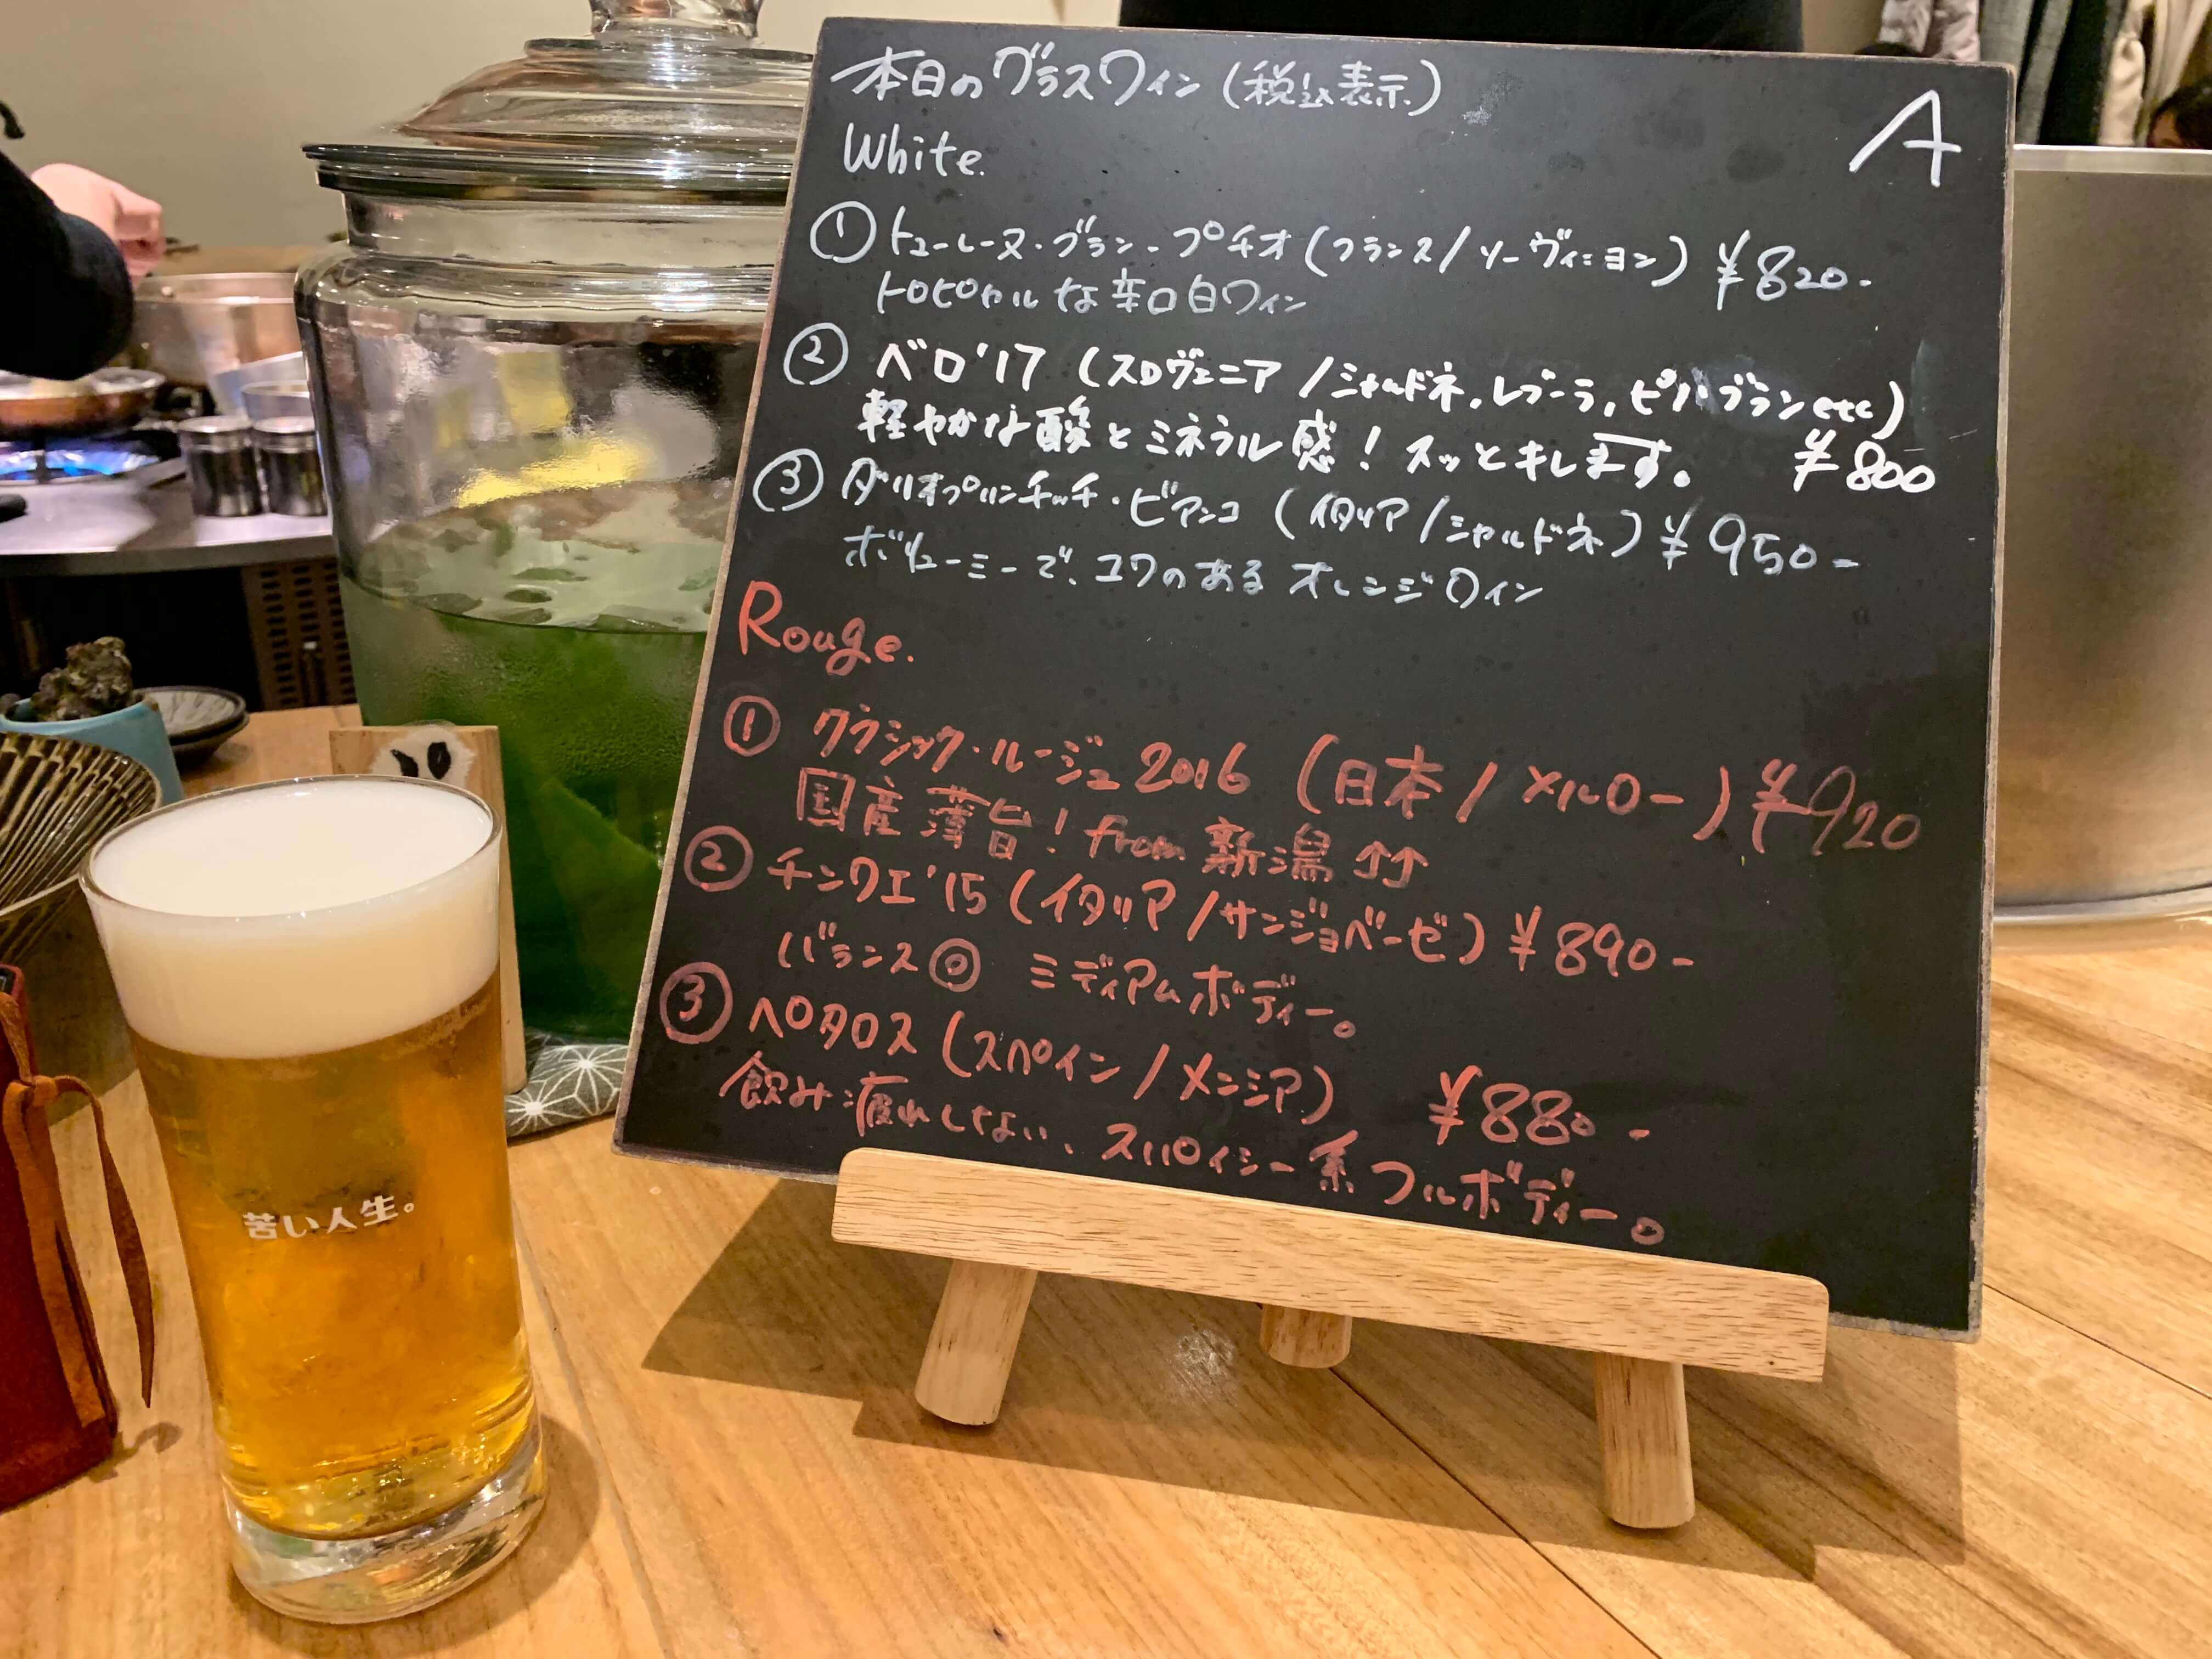 本日のグラスワイン(税込表示)
A
White.
① トゥーレーヌ・ブラン・プチオ(フランス/ソーヴィニヨン) ¥820-
トロピカルな辛口白ワイン
② ベロ'17 (スロヴェニア/シャルドネ,レブーラ,ピノ・ブランetc)
軽やかな酸とミネラル感!スッとキレます。 ¥800
③ ダリオプリンチッチ・ビアンコ (イタリア/シャルドネ) ¥950-
ボリューミーで、コクのあるオレンジワイン
Rouge.
① クラシック・ルージュ2016 (日本/メルロー) ¥920
国産薄旨!from 新潟↑↑
② チンクエ'15 (イタリア/サンジョベーゼ) ¥890-
バランス◎ ミディアムボディー。
③ ペタロス (スペイン/メンシア) ¥880-
飲み疲れしない、スパイシー系フルボディー。
苦い人生。